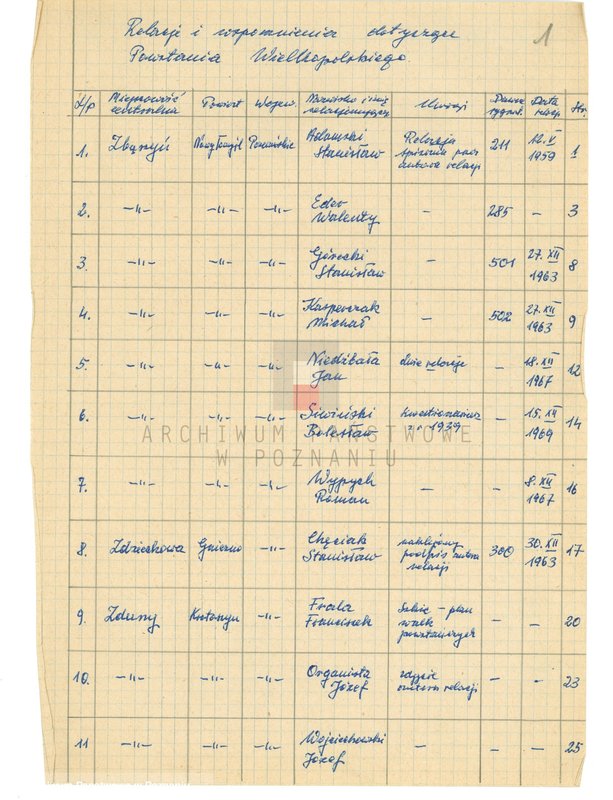 1
Relacje i wspomnienia dotyczące
Powstania Wielkopolskiego.
L/p Miejscowość Powiat Wojew. Nazwisko i imię relacjonującego Uwagi Dawna sygnat. Data relacji Str.
1. Zbąszyń Nowy Tomyśl Poznańskie Adamski Stanisław Relacja spisana przez autora relacji 211 12.V 1959 1
2. -"- -"- -"- Eder Walenty - 285 - 3
3. -"- -"- -"- Górecki Stanisław - 501 27.XII 1963 8
4. -"- -"- -"- Kasperczak Michał - 502 27.XII 1963 9
5. -"- -"- -"- Niedźbała Jan dwie relacje - 18.XII 1967 12
6. -"- -"- -"- Siwiński Bolesław kwestionariusz z r. 1939 - 15.XII 1969 14
7. -"- -"- -"- Wypych Roman - - 8.XII 1967 16
8. Zdziechowa Gniezno -"- Chęciak Stanisław podpis autora relacji 300 30.XII 1963 17
9. Zduny Krotoszyn -"- Frala Franciszek Szkic - plan walk powstańczych - - 20
10. -"- -"- -"- Organista Józef zdjęcie autora relacji - - 23
11 -"- -"- -"- Wojciechowski Józef - - - 25
ARCHIWUM PAŃSTWOWE
W POZNANIU